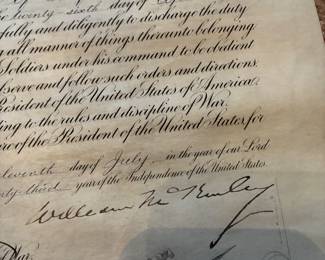 twenty sixth day of
fully and diligently to discharge the duty
all manner of things thereunto belonging.
Soldiers under his command to be obedient
observe and follow such orders and directions,
President of the United States of America,
ding to the rules and discipline of War;
re of the President of the United States for
eleventh day of July in the year of our Lord
nty third year of the Independence of the United States.
William McKinley
War.